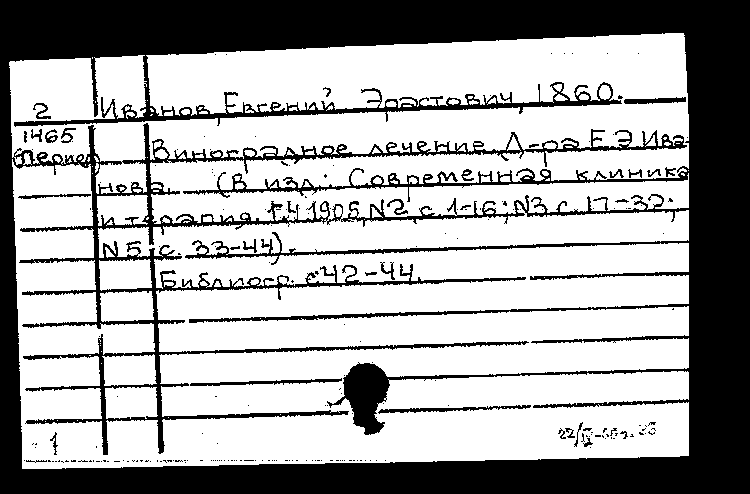 2 Иванов, Евгений Эрастович, 1860.
1465
Период Виноградное лечение. Д-ра Е. Э. Ива-
нова. (В изд.: Современная клиника
и терапия. Г. 4 1905, N2, с. 1-16; N3 с. 17-32;
N5 с. 33-44).
Библиогр. с 42-44.
1